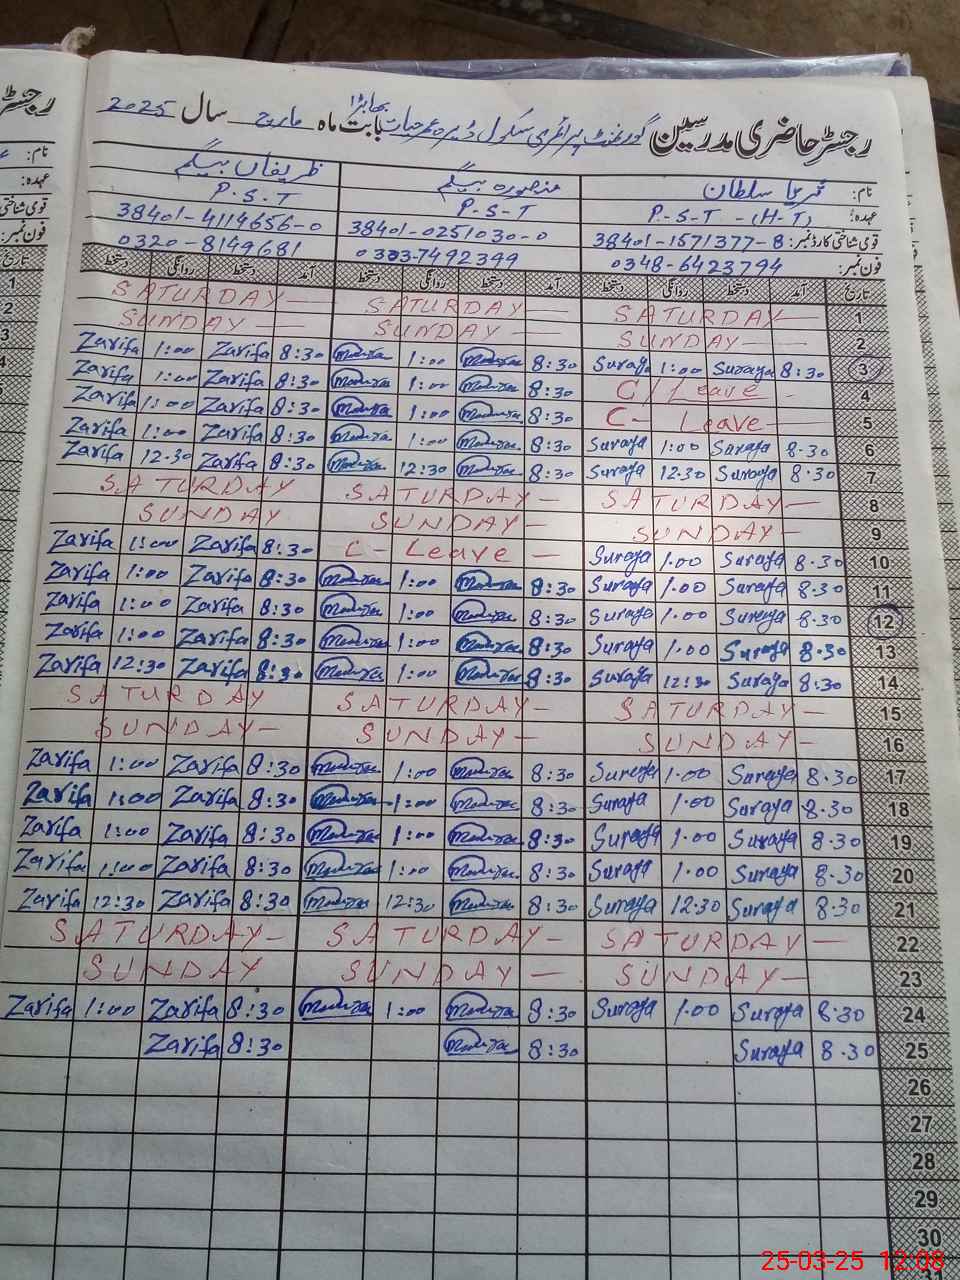 رجسٹر حاضری مدرسین گورنمنٹ پرائمری سکول ڈیرہ عمر حیات بھابڑا بابت ماہ مارچ سال 2025
نام: ثریا سلطان منصورہ بیگم ظریفاں بیگم
عہدہ: P-S-T-(H-T) P-S-T P.S.T
قومی شناختی کارڈ نمبر: 38401-1571377-8 38401-0251030-0 38401-4114656-0
فون نمبر: 0348-6423794 0303-7492399 0320-8149681
تاریخ آمد دستخط روانگی دستخط آمد دستخط روانگی دستخط آمد دستخط روانگی دستخط
SATURDAY SATURDAY SATURDAY 1
SUNDAY SUNDAY SUNDAY 2
Zarifa 1:00 Zarifa 8:30 1:00 8:30 Suraya 1:00 Suraya 8:30 3
Zarifa 1:00 Zarifa 8:30 1:00 8:30 C/Leave - 4
Zarifa 1:00 Zarifa 8:30 1:00 8:30 C- Leave 5
Zarifa 1:00 Zarifa 8:30 1:00 8:30 Suraya 1:00 Suraya 8.30 6
Zarifa 12.30 Zarifa 8:30 12:30 8:30 Suraya 12.30 Suraya 8.30 7
SATURDAY SATURDAY- SATURDAY- 8
SUNDAY SUNDAY- SUNDAY- 9
Zarifa 1:00 Zarifa 8:30 C- Leave - Suraya 1.00 Suraya 8.30 10
Zarifa 1:00 Zarifa 8:30 1:00 8:30 Suraya 1.00 Suraya 8.30 11
Zarifa 1:00 Zarifa 8:30 1:00 8:30 Suraya 1.00 Suraya 8.30 12
Zarifa 1:00 Zarifa 8:30 1:00 8:30 Suraya 1.00 Suraya 8.30 13
Zarifa 12:30 Zarifa 8:30 1:00 8:30 Suraya 12:30 Suraya 8.30 14
SATURDAY SATURDAY- SATURDAY- 15
SUNDAY SUNDAY- SUNDAY- 16
Zarifa 1:00 Zarifa 8:30 1:00 8:30 Suraya 1.00 Suraya 8.30 17
Zarifa 1:00 Zarifa 8:30 1:00 8:30 Suraya 1.00 Suraya 8.30 18
Zarifa 1:00 Zarifa 8:30 1:00 8:30 Suraya 1.00 Suraya 8.30 19
Zarifa 1:00 Zarifa 8:30 1:00 8:30 Suraya 1.00 Suraya 8.30 20
Zarifa 12:30 Zarifa 8:30 12:30 8:30 Suraya 12.30 Suraya 8.30 21
SATURDAY- SATURDAY- SATURDAY- 22
SUNDAY SUNDAY- SUNDAY- 23
Zarifa 1:00 Zarifa 8:30 1:00 8:30 Suraya 1.00 Suraya 8.30 24
Zarifa 8:30 8:30 Suraya 8.30 25
26
27
28
29
30
31
25-03-25 12:08